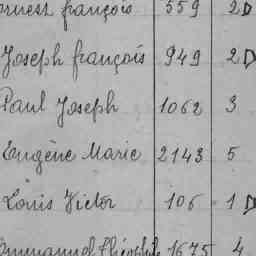 Ernest françois 559 2D
Joseph françois 949 2D
Paul Joseph 1062 3
Eugène Marie 2143 5
Louis Victor 106 1D
Emmanuel Théophile 1675 4